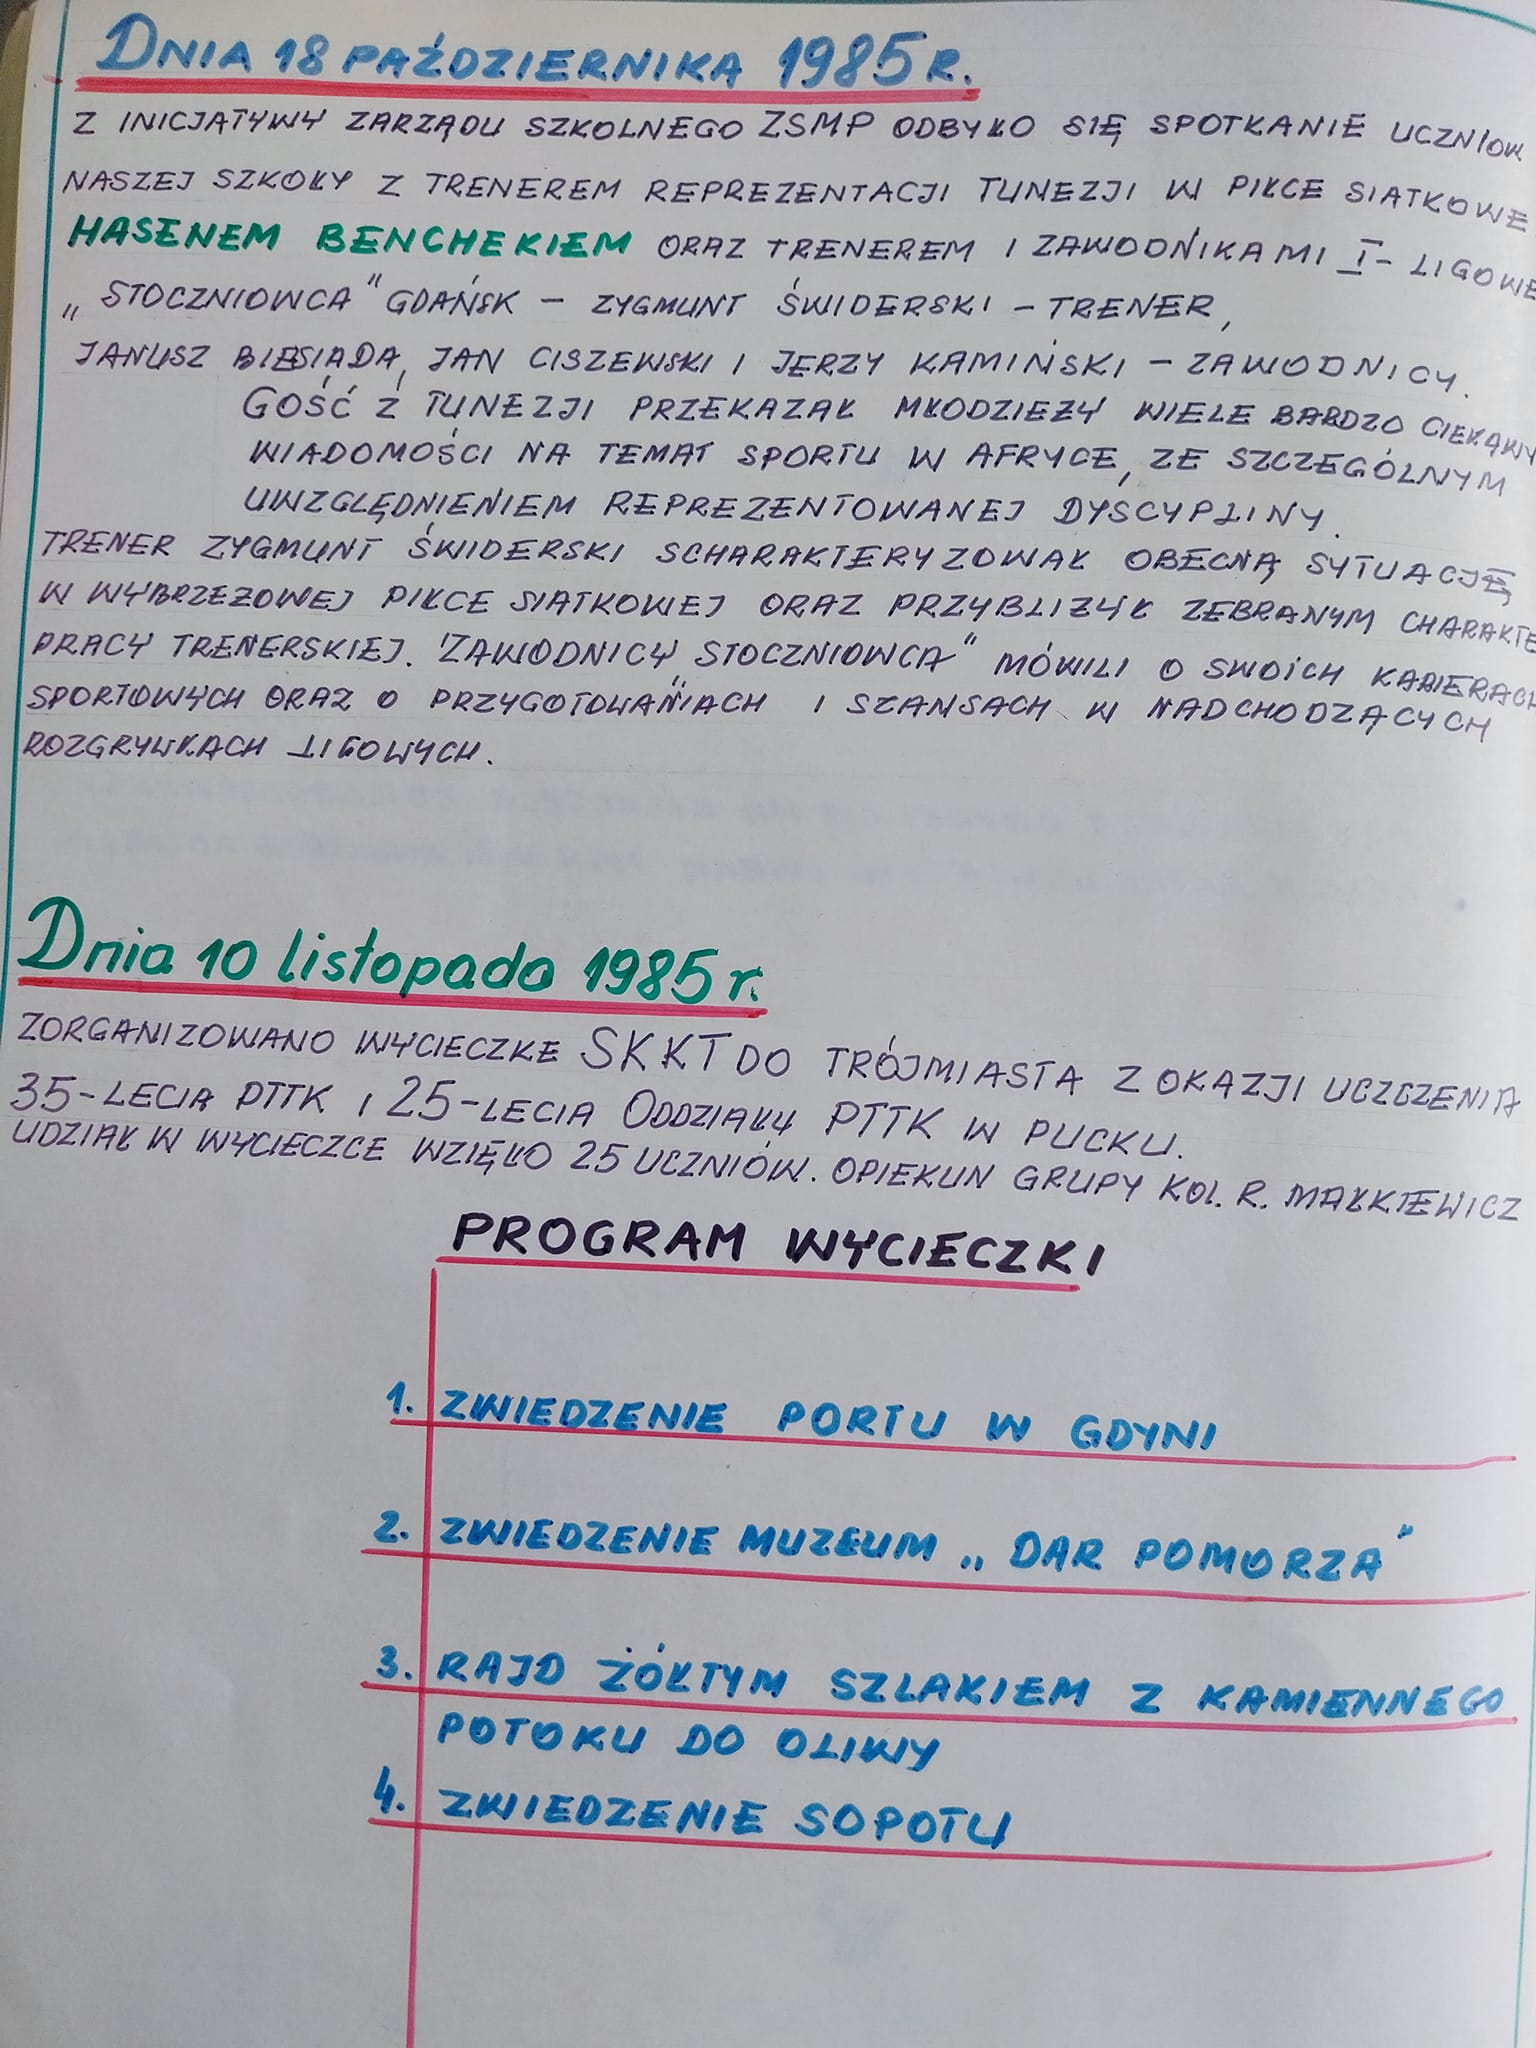 DNIA 18 PAŹDZIERNIKA 1985 R.
Z INICJATYWY ZARZĄDU SZKOLNEGO ZSMP ODBYŁO SIĘ SPOTKANIE UCZNIÓW
NASZEJ SZKOŁY Z TRENEREM REPREZENTACJI TUNEZJI W PIŁCE SIATKOWE
HASENEM BENCHEKIEM ORAZ TRENEREM I ZAWODNIKAMI I- LIGOWE
„STOCZNIOWCA" GDAŃSK - ZYGMUNT ŚWIDERSKI - TRENER,
JANUSZ BIESIADA, JAN CISZEWSKI I JERZY KAMIŃSKI - ZAWODNICY.
GOŚĆ Z TUNEZJI PRZEKAZAŁ MŁODZIEŻY WIELE BARDZO CIEKAWY
WIADOMOŚCI NA TEMAT SPORTU W AFRYCE, ZE SZCZEGÓLNYM
UWZGLĘDNIENIEM REPREZENTOWANEJ DYSCYPLINY.
TRENER ZYGMUNT ŚWIDERSKI SCHARAKTERYZOWAŁ OBECNĄ SYTUACJĘ
W WYBRZEŻOWEJ PIŁCE SIATKOWEJ ORAZ PRZYBLIŻYŁ ZEBRANYM CHARAKTE
PRACY TRENERSKIEJ. ZAWODNICY „STOCZNIOWCA" MÓWILI O SWOICH KARIERACH
SPORTOWYCH ORAZ O PRZYGOTOWANIACH I SZANSACH W NADCHODZĄCYCH
ROZGRYWKACH LIGOWYCH.
Dnia 10 listopada 1985 r.
ZORGANIZOWANO WYCIECZKE SKKT DO TRÓJMIASTA Z OKAZJI UCZCZENIA
35-LECIA PTTK I 25-LECIA ODDZIAŁU PTTK W PUCKU.
UDZIAŁ W WYCIECZCE WZIĘŁO 25 UCZNIÓW. OPIEKUN GRUPY KOL. R. MAŁKIEWICZ
PROGRAM WYCIECZKI
1. ZWIEDZENIE PORTU W GDYNI
2. ZWIEDZENIE MUZEUM „DAR POMORZA"
3. RAJD ŻÓŁTYM SZLAKIEM Z KAMIENNEGO
POTOKU DO OLIWY
4. ZWIEDZENIE SOPOTU